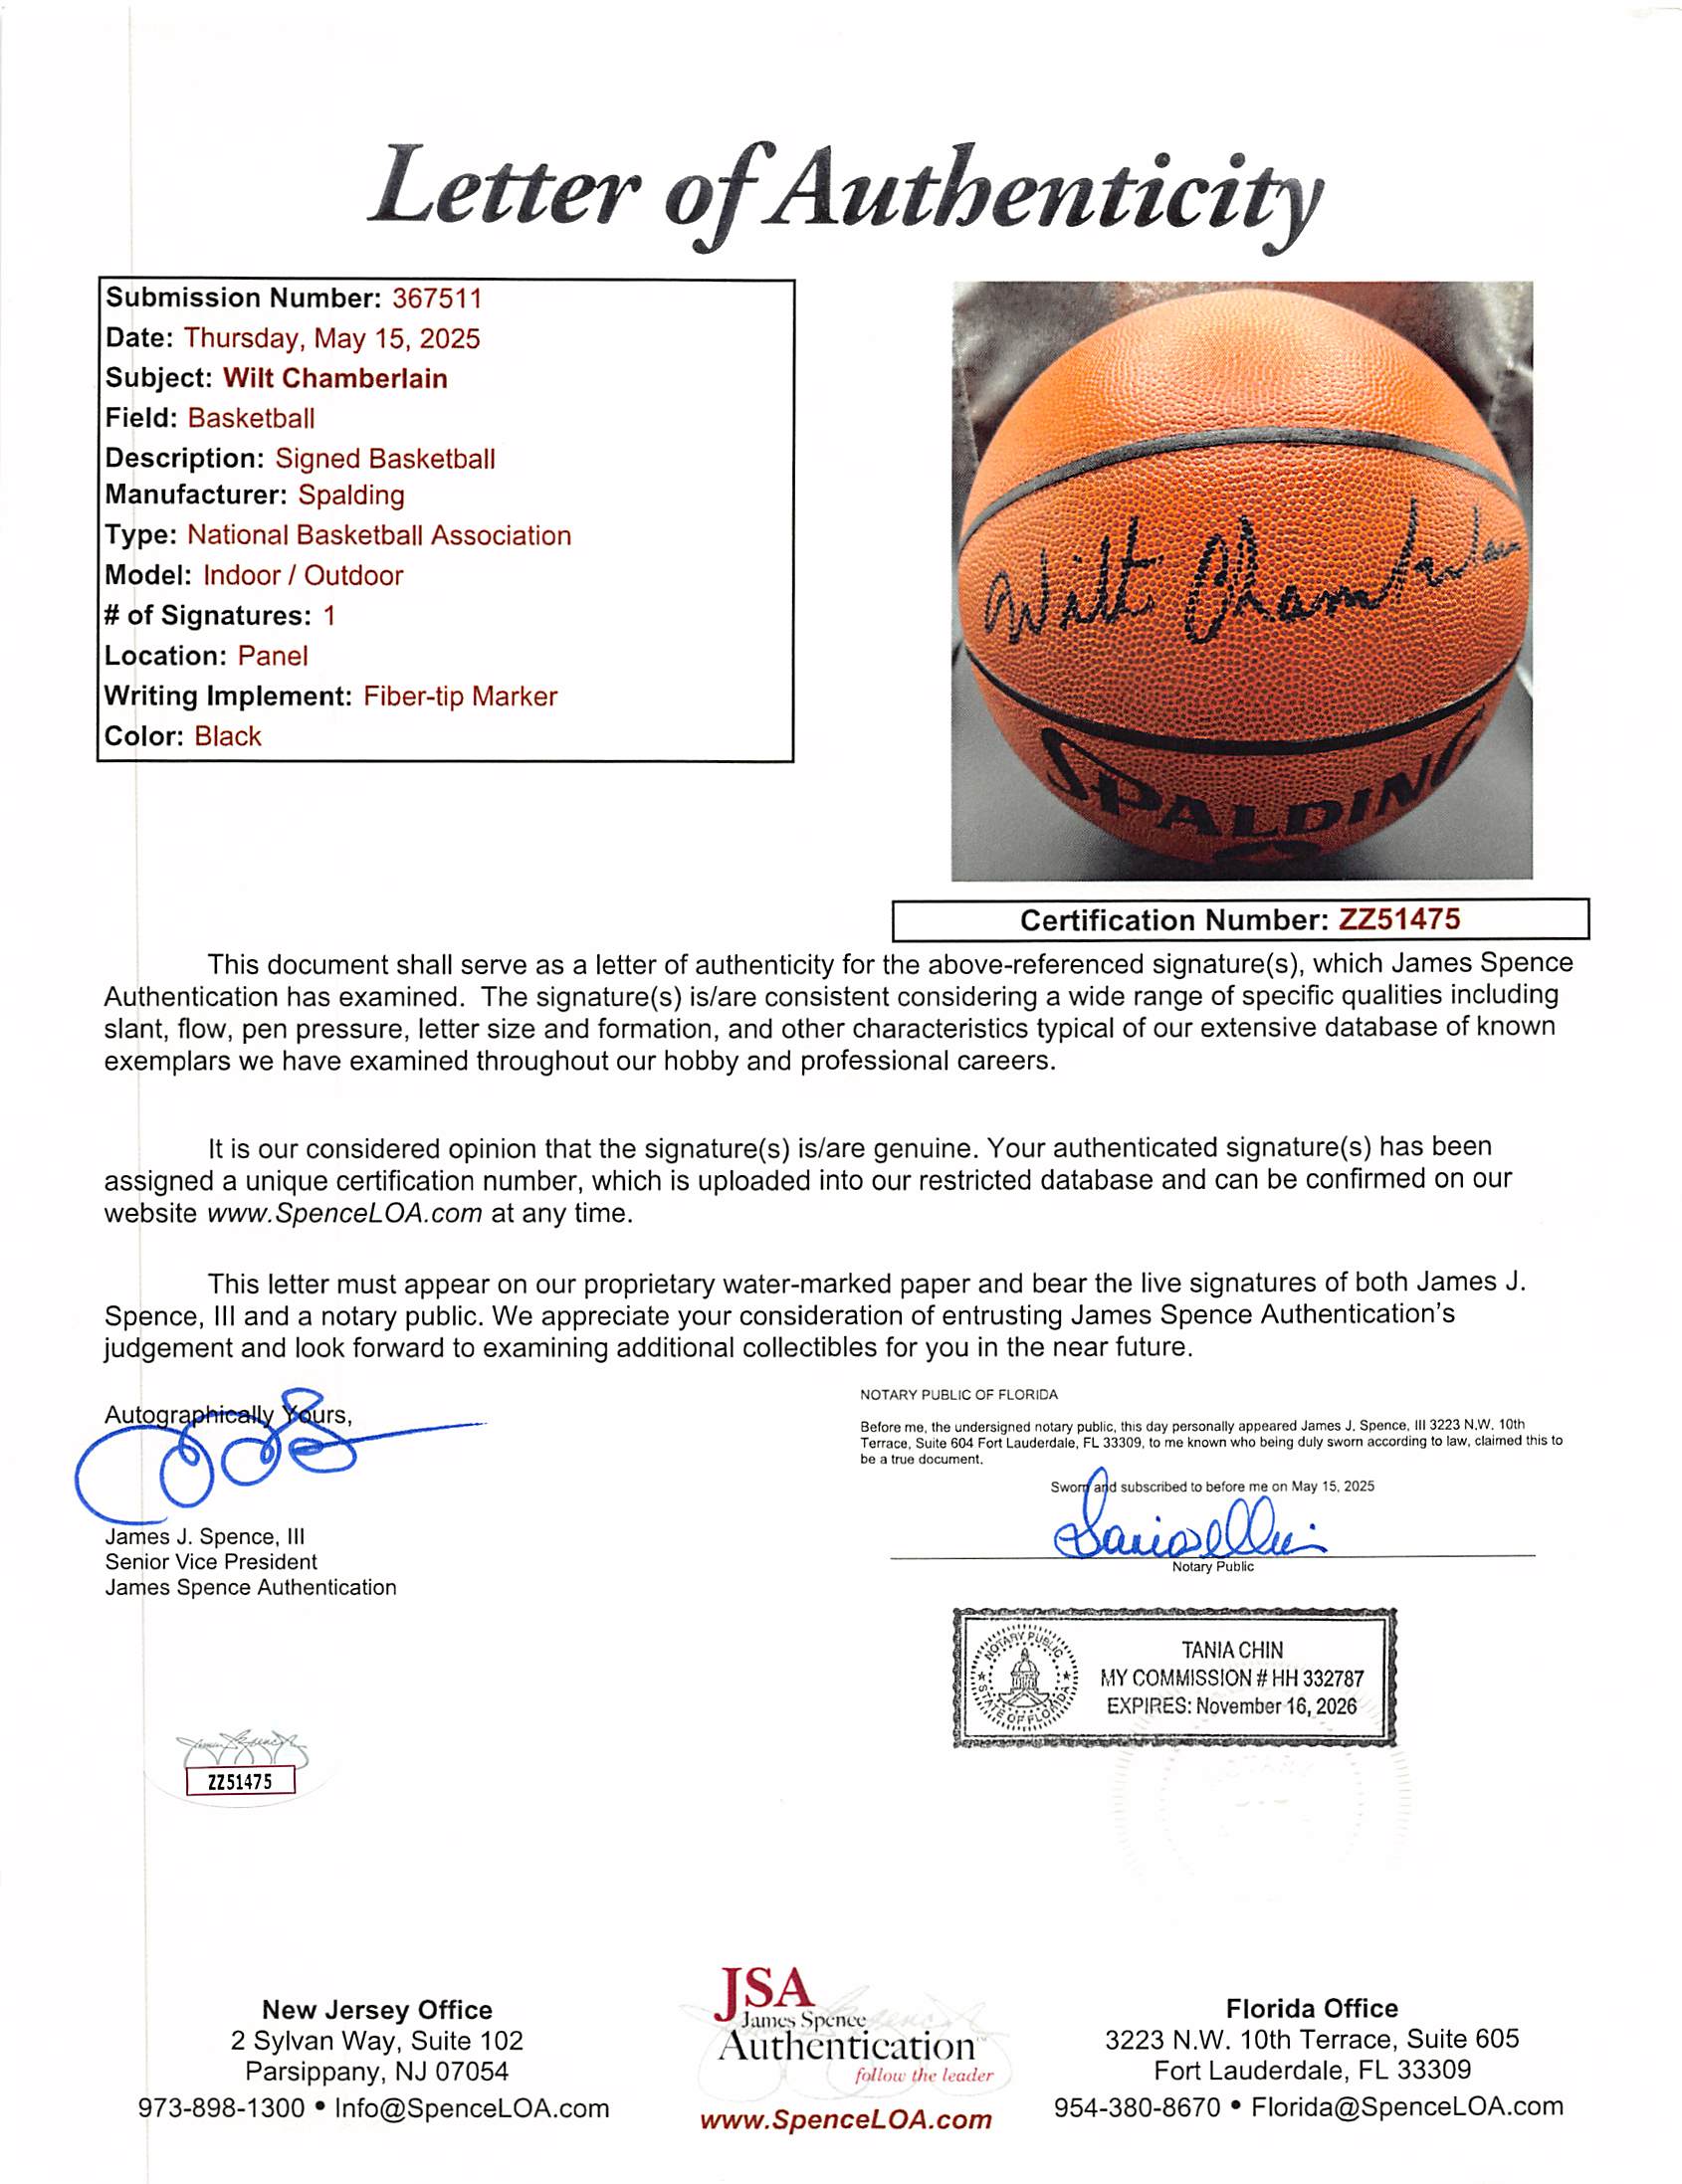 Letter of Authenticity
Submission Number: 367511
Date: Thursday, May 15, 2025
Subject: Wilt Chamberlain
Field: Basketball
Description: Signed Basketball
Manufacturer: Spalding
Type: National Basketball Association
Model: Indoor / Outdoor
# of Signatures: 1
Location: Panel
Writing Implement: Fiber-tip Marker
Color: Black
Wilt Chamberlain
SPALDING
Certification Number: ZZ51475
This document shall serve as a letter of authenticity for the above-referenced signature(s), which James Spence
Authentication has examined. The signature(s) is/are consistent considering a wide range of specific qualities including
slant, flow, pen pressure, letter size and formation, and other characteristics typical of our extensive database of known
exemplars we have examined throughout our hobby and professional careers.
It is our considered opinion that the signature(s) is/are genuine. Your authenticated signature(s) has been
assigned a unique certification number, which is uploaded into our restricted database and can be confirmed on our
website www.SpenceLOA.com at any time.
This letter must appear on our proprietary water-marked paper and bear the live signatures of both James J.
Spence, III and a notary public. We appreciate your consideration of entrusting James Spence Authentication's
judgement and look forward to examining additional collectibles for you in the near future.
Autographically Yours,
James J. Spence, III
Senior Vice President
James Spence Authentication
NOTARY PUBLIC OF FLORIDA
Before me, the undersigned notary public, this day personally appeared James J. Spence, III 3223 N.W. 10th
Terrace, Suite 604 Fort Lauderdale, FL 33309, to me known who being duly sworn according to law, claimed this to
be a true document.
Sworn and subscribed to before me on May 15, 2025
Notary Public
NOTARY PUBLIC
STATE OF FLORIDA
TANIA CHIN
MY COMMISSION # HH 332787
EXPIRES: November 16, 2026
ZZ51475
New Jersey Office
2 Sylvan Way, Suite 102
Parsippany, NJ 07054
973-898-1300 • Info@SpenceLOA.com
JSA
James Spence
Authentication
follow the leader
www.SpenceLOA.com
Florida Office
3223 N.W. 10th Terrace, Suite 605
Fort Lauderdale, FL 33309
954-380-8670 • Florida@SpenceLOA.com